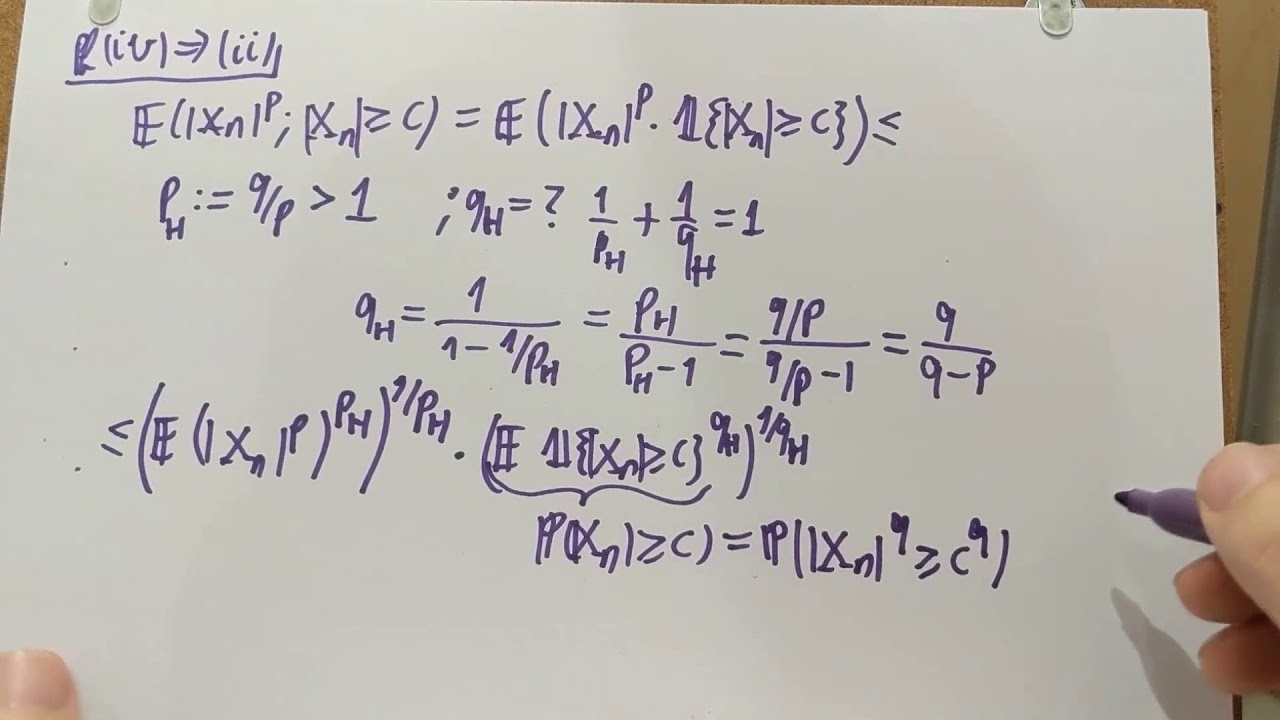 (iv) ⇒ (ii)
𝔼(|Xₙ|ᵖ; |Xₙ| ≥ C) = 𝔼(|Xₙ|ᵖ · 𝟙{|Xₙ| ≥ C}) ≤
p_H := q/p > 1 ; q_H = ? 1/p_H + 1/q_H = 1
q_H = 1/(1 - 1/p_H) = p_H/(p_H - 1) = (q/p)/(q/p - 1) = q/(q - p)
≤ (𝔼(|Xₙ|ᵖ)^{p_H})^{1/p_H} · (𝔼 𝟙{|Xₙ| ≥ C}^{q_H})^{1/q_H}
ℙ(|Xₙ| ≥ C) = ℙ(|Xₙ|^q ≥ C^q)